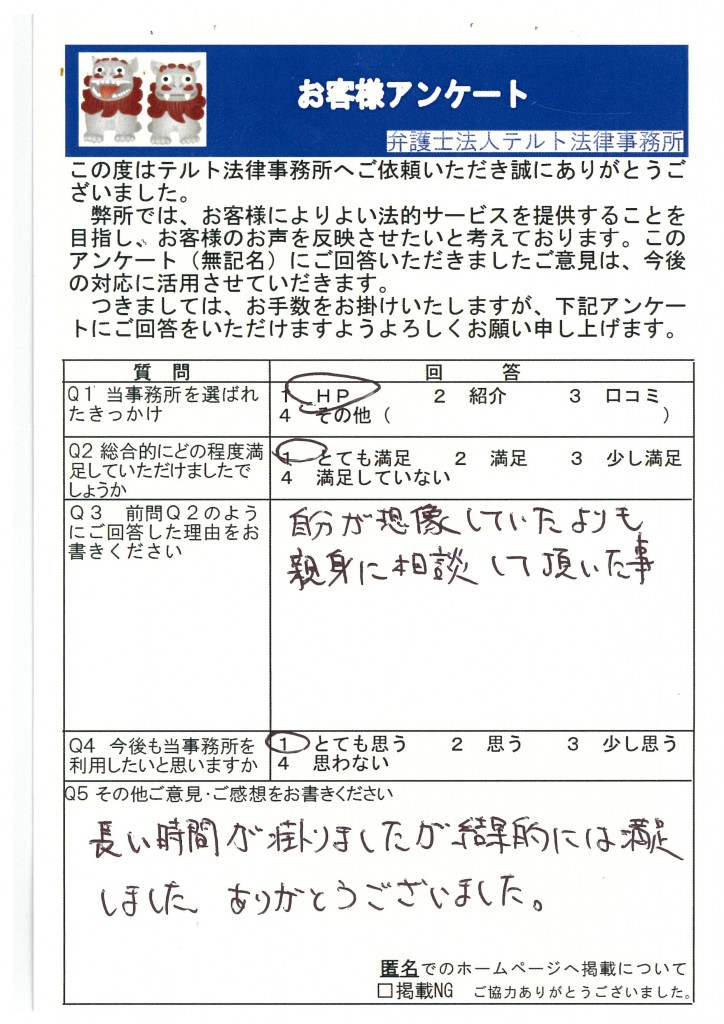 お客様アンケート
弁護士法人テルト法律事務所
この度はテルト法律事務所へご依頼いただき誠にありがとうご
ざいました。
　弊所では、お客様によりよい法的サービスを提供することを
目指し、お客様のお声を反映させたいと考えております。この
アンケート（無記名）にご回答いただきましたご意見は、今後
の対応に活用させていだきます。
　つきましては、お手数をお掛けいたしますが、下記アンケー
トにご回答をいただけますようよろしくお願い申し上げます。
質　問　回　答
Q1 当事務所を選ばれ
たきっかけ
1　HP　2　紹介　3　口コミ
4　その他（　）
Q2 総合的にどの程度満
足していただけましたで
しょうか
1　とても満足　2　満足　3　少し満足
4　満足していない
Q3　前問Q2のよう
にご回答した理由をお
書きください
自分が想像していたよりも
親身に相談して頂いた事
Q4　今後も当事務所を
利用したいと思いますか
1　とても思う　2　思う　3　少し思う
4　思わない
Q5 その他ご意見・ご感想をお書きください
長い時間が掛りましたが結果的には満足
しました、ありがとうございました。
匿名でのホームページへ掲載について
□掲載NG　ご協力ありがとうございました。